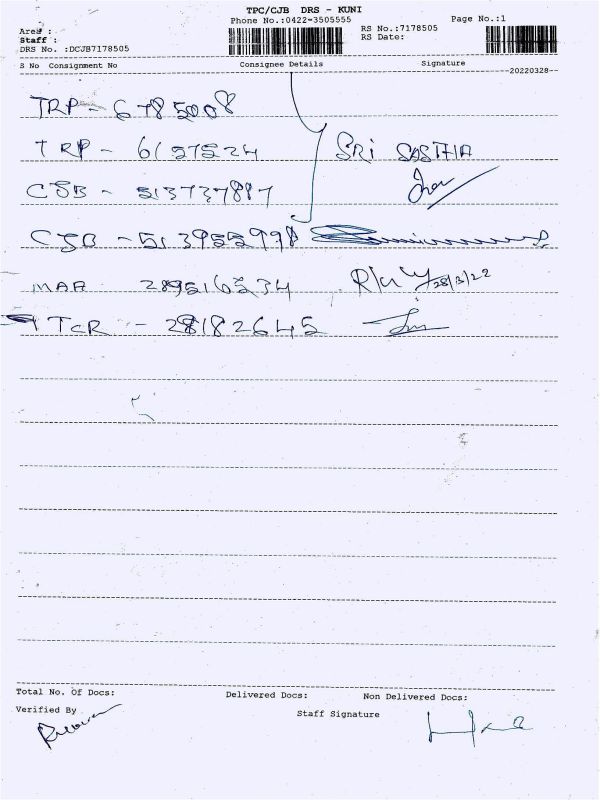 TPC/CJB DRS - KUNI
Phone No.:0422-3505555
Page No.:1
Area :
RS No.:7178505
Staff :
RS Date:
DRS No. :DCJB7178505
S No Consignment No Consignee Details Signature
20220328
TRP - 6785008
TRP - 6157524
SRI SASTHA
CJB - 513737887
CJB - 513955998
MAA 289516534
28/3/22
TCR - 28182645
Total No. Of Docs: Delivered Docs: Non Delivered Docs:
Verified By
Staff Signature